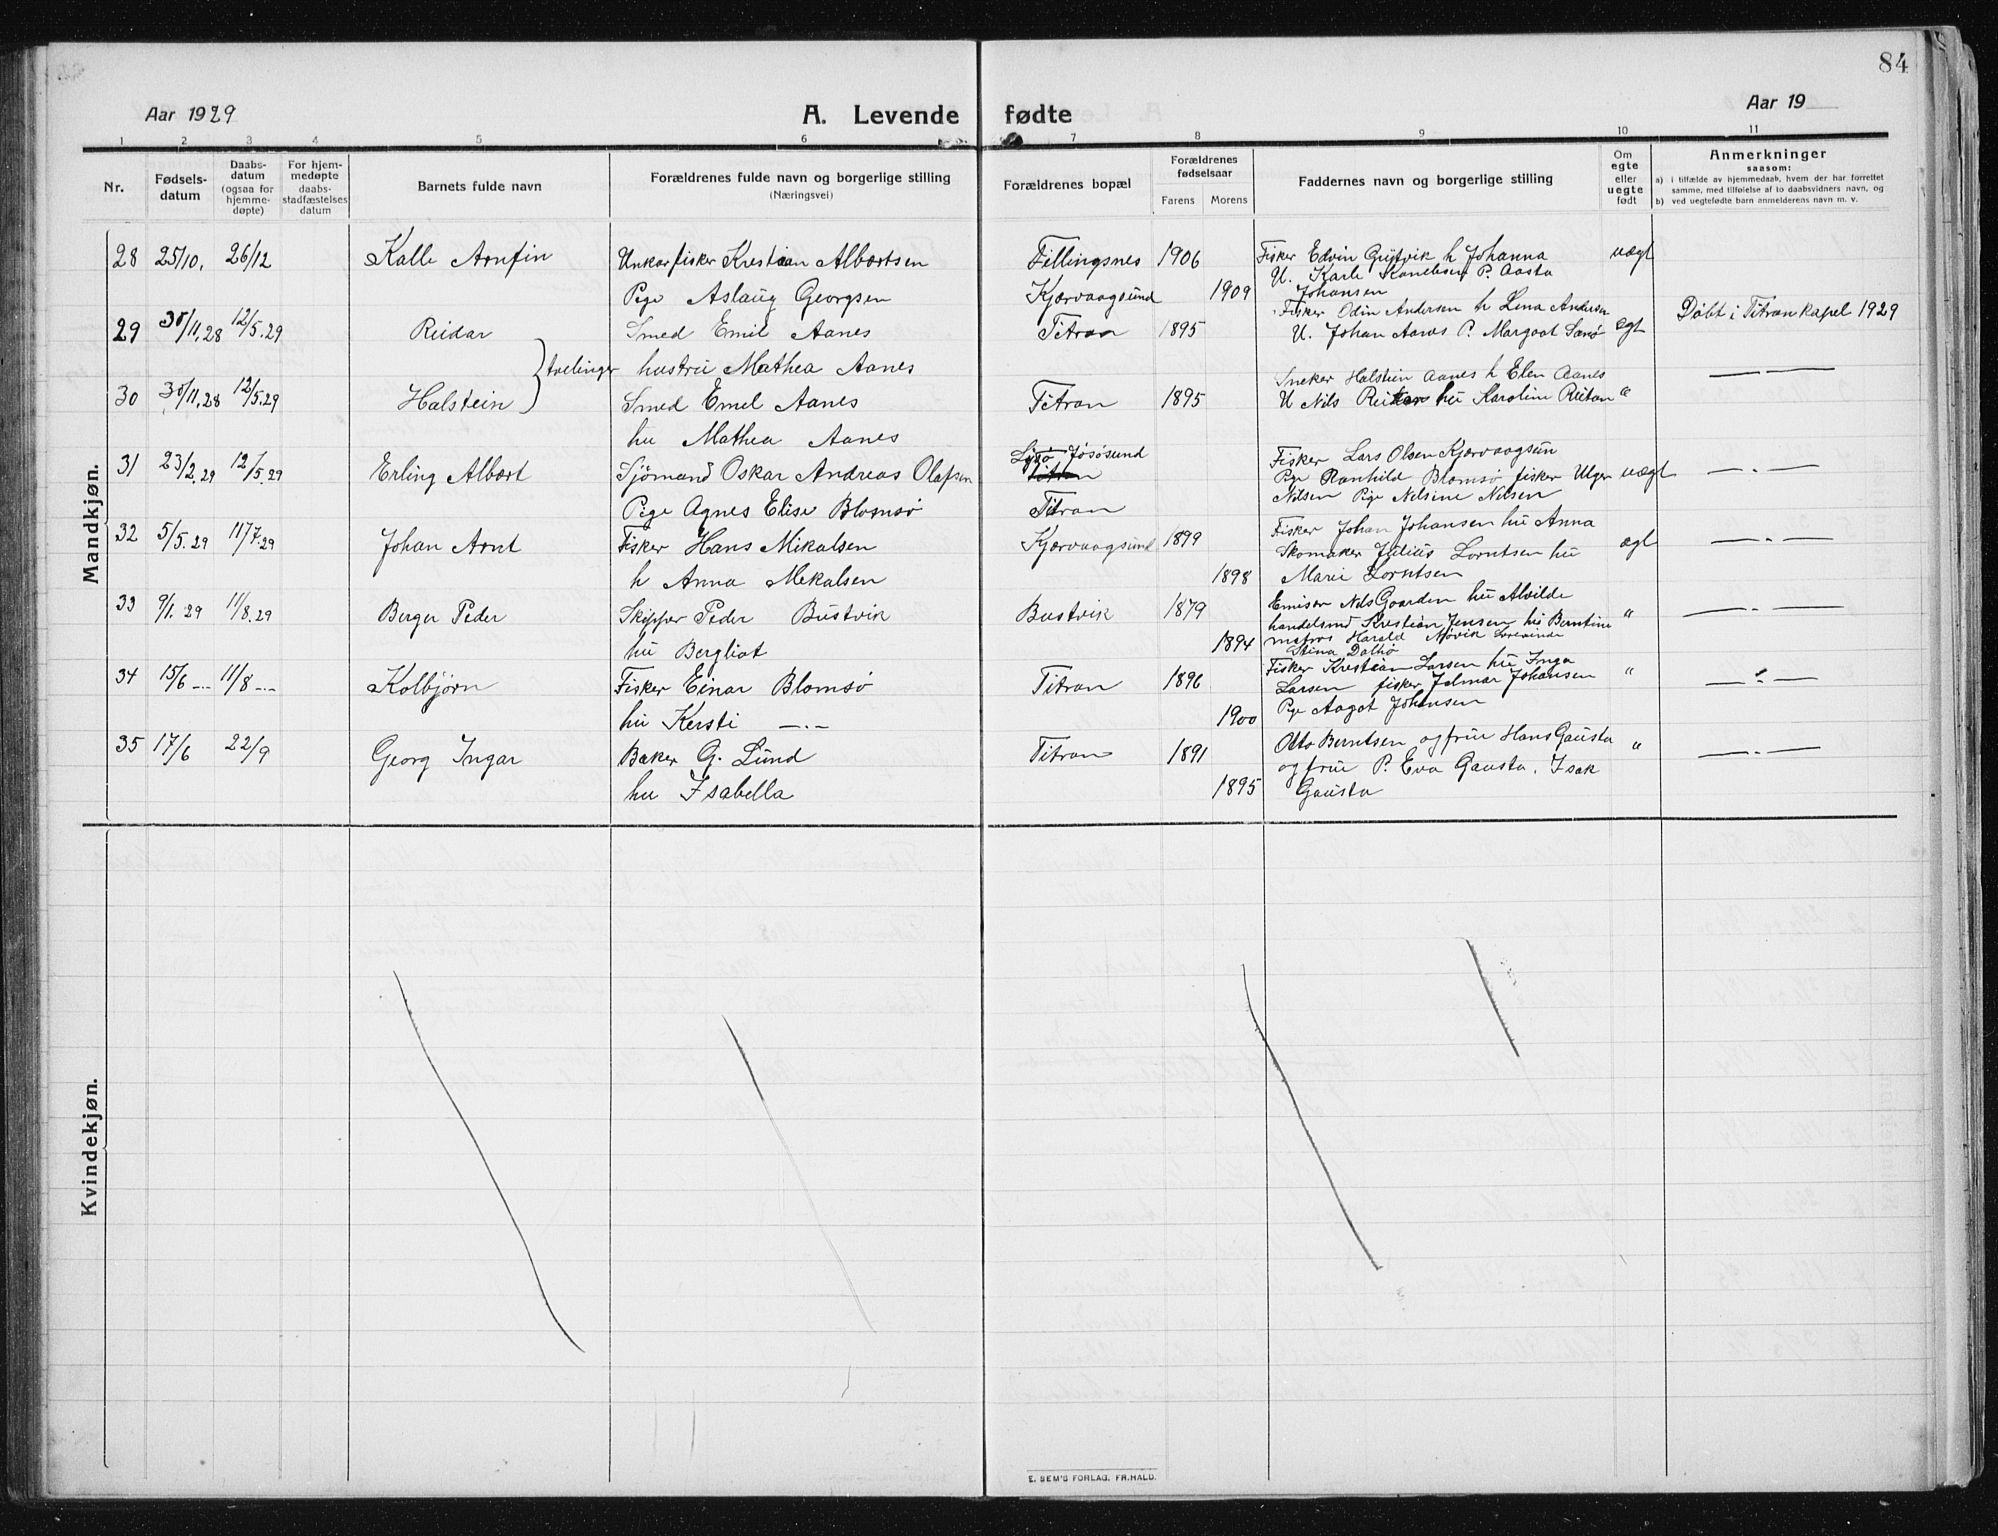 84
Aar 1929
A. Levende fødte
Aar 19
1 2 3 4 5 6 7 8 9 10 11
Nr.
Fødsels-
datum
Daabs-
datum
(ogsaa for
hjemme-
døpte)
For hjem-
medøpte
daabs-
stadfæstelses
datum
Barnets fulde navn
Forældrenes fulde navn og borgerlige stilling
(Næringsvei)
Forældrenes bopæl
Forældrenes
fødselsaar
Farens Morens
Faddernes navn og borgerlige stilling
Om
egte
eller
uegte
født
Anmerkninger
saasom:
a) i tilfælde av hjemmedaab, hvem der har forrettet
samme, med tilføielse af to daabsvidners navn, og
b) ved uegtefødte barn anmelderens navn m. v.
Mandkjøn.
28 25/10. 26/12 Kalle Arnfin Unkarfisker Krestian Albertsen Fillingsnes 1906 Fisker Edvin h Johanna uægt
U. Karle P. Aasta
Pige Aslaug Georgsen Kjærvaagsund 1909 Johansen
29 30/11.28 12/5.29 Reidar Smed Emil Aanes Titran 1895 Fisker Odin Andersen h Lena Andersen ægt Döbt i Titran kapel 1929
U. Johan Aanes P. Margaat
tvelinger hustru Mathea Aanes
30 30/11.28 12/5.29 Halstein Smed Emel Aanes Titran 1895 Sneker Halstein Aanes h Elen Aanes " — " —
U Nils hu Karoline Reitan
hu Mathea Aanes
31 23/2.29 12/5.29 Erling Albert Sjømand Oskar Andreas Olafsen Jøsøsund Fisker Lars Olsen Kjærvaagsun uægt — " —
Pige Ranhild Blomsø fisker
Pige Agnes Elise Blomsø Titran Nilsen Pige Nelsine Nilsen
32 5/5.29 11/7.29 Johan Arnt Fisker Hans Mikalsen Kjærvaagsund 1899 Fisker Johan Johansen hu Anna ægt — " —
Skomaker Julius Lorntsen hu
h Anna Mekalsen 1898 Marie Lorntsen
33 9/1.29 11/8.29 Berger Peder Skipper Peder Bustvik Bustvik 1879 Emisær Nils Gaarden hu Alvilde " — " —
handelsmd Krestian Jensen hu Berntine
hu Bergliot 1894 matros Harald Møvik
Stina Dalhø
34 15/6 — 11/8 — Kolbjørn Fisker Einar Blomsø Titran 1896 Fisker Krestian Larsen hu Inga " — " —
Larsen fisker Jelmar Johansen
hu Kersti — " — 1900 Pige Aagot Johansen
35 17/6 22/9 Georg Ingar Baker G. Lund Titran 1891 Otto Berntsen og frue Hans Gausta " — " —
og frue P. Eva Gausta. Isak
hu Isabella 1895 Gausta
Kvindekjøn.
E. SEM'S FORLAG, FR.HALD.